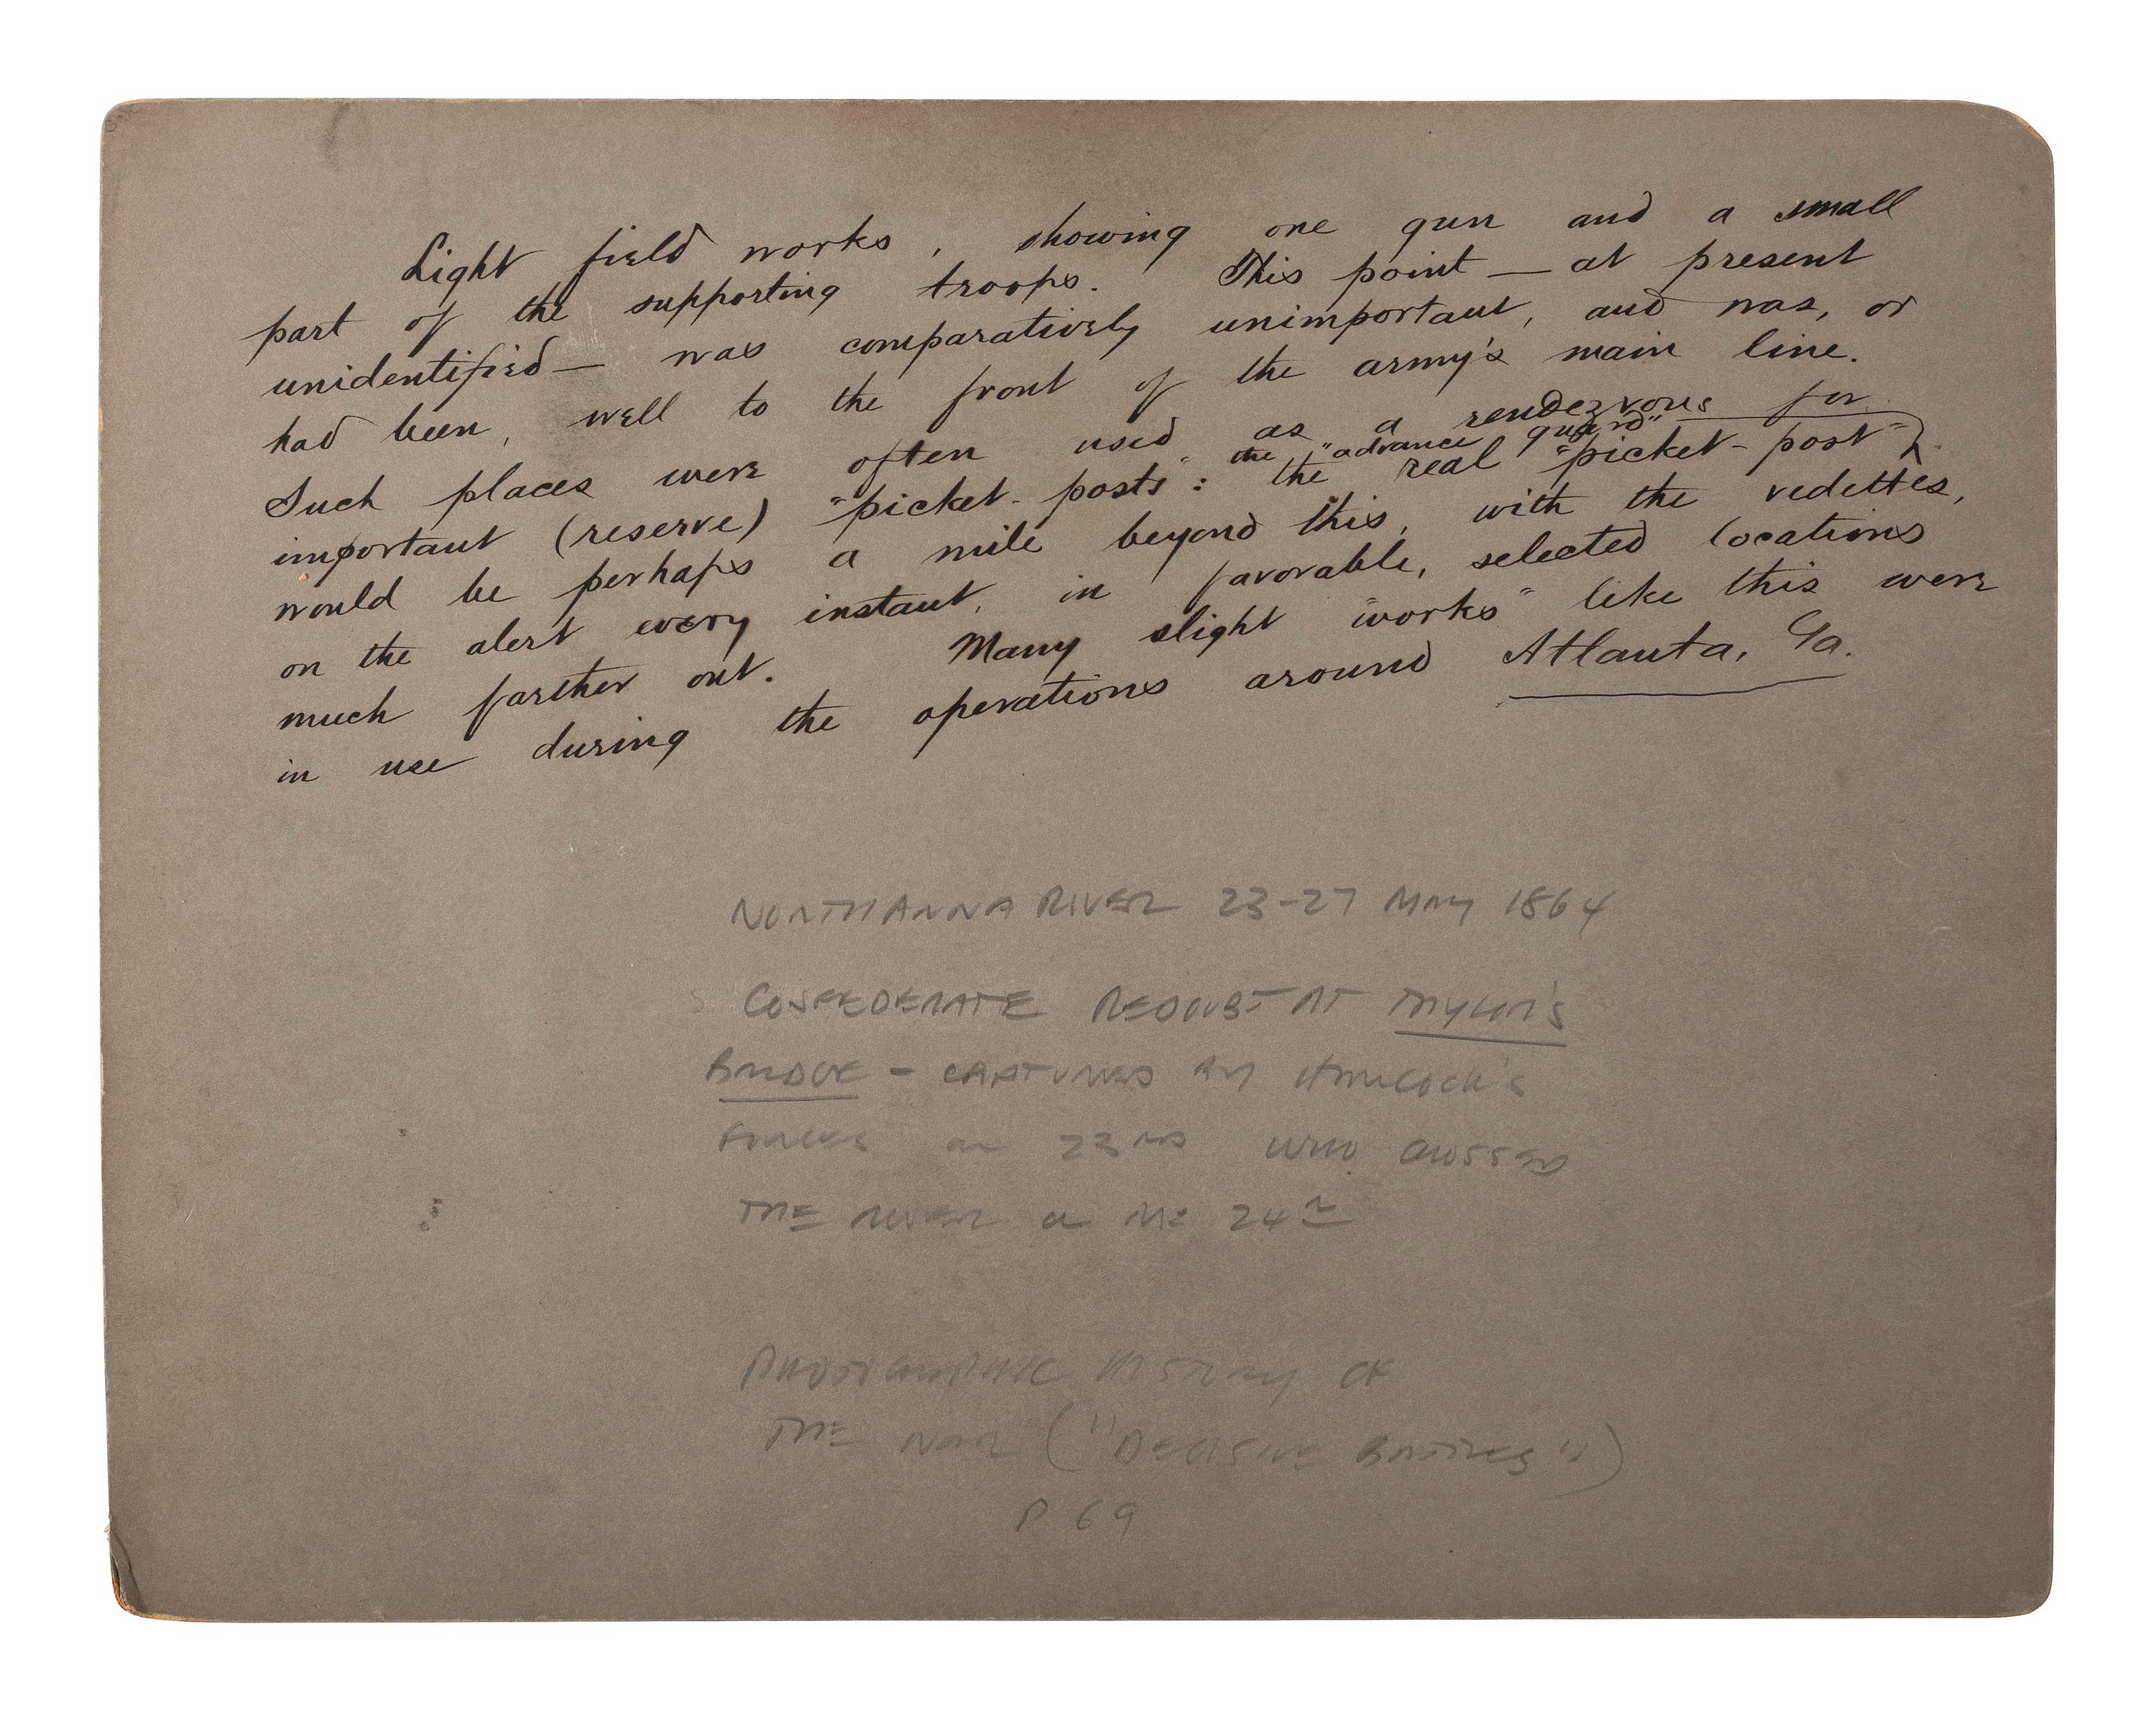 Light field works, showing one gun and a small
part of the supporting troops. This point — at present
unidentified — was comparatively unimportant, and was, or
had been, well to the front of the army's main line.
Such places were often used as a rendezvous for
the "advance guard"
important (reserve) "picket-posts": the real "picket-post"
would be perhaps a mile beyond this, with the vedettes,
on the alert every instant, in favorable, selected locations
much farther out. Many slight "works" like this were
in use during the operations around Atlanta, Ga.
NORTH ANNA RIVER 23-27 MAY 1864
CONFEDERATE REDOUBT AT TAYLOR'S
BRIDGE - CAPTURED BY HANCOCK'S
FORCES ON 23RD WHO CROSSED
THE RIVER ON THE 24TH
PHOTOGRAPHIC HISTORY OF
THE WAR ("DECISIVE BATTLES")
P 69